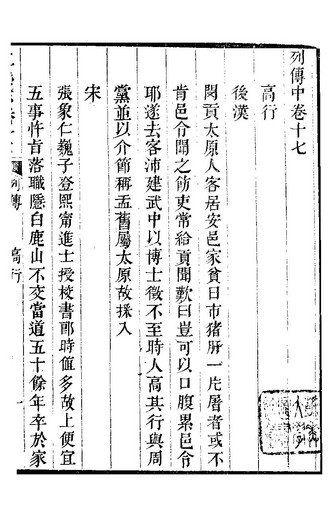 列傳中卷十七
高行
後漢
閔貢太原人客居安邑家貧日市猪肝一片屠者或不
肯邑令聞之飭吏常給貢聞歎曰豈可以口腹累邑令
耶遂去客沛建武中以博士徵不至時人高其行與周
黨並以介節稱孟舊屬太原故採入
宋
張象仁巍子登熙甯進士授校書郎時値多故上便宜
五事忤旨落職隱白鹿山不交當道五十餘年卒於家
列傳 高行 一